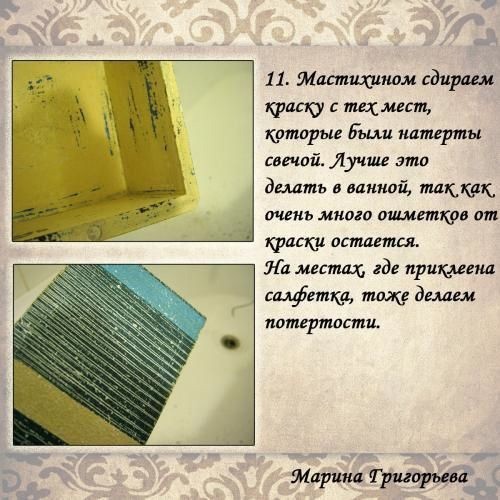 11. Мастихином сдираем
краску с тех мест,
которые были натерты
свечой. Лучше это
делать в ванной, так как
очень много ошметков от
краски остается.
На местах, где приклеена
салфетка, тоже делаем
потертости.
Марина Григорьева